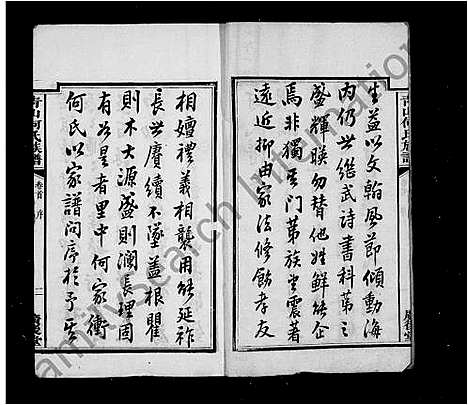 生益以文翰風節傾動海
内仍世繼武詩書科第之
盛輝暎勿替他姓鮮能企
焉非獨其門第族望震著
遠近抑由家法修飭孝友
相嬗禮義相襲用能延祚
長世賡續不墜蓋根瞿
則木大源盛則瀾長理固
有必是者里中何家衝
何氏以家譜問序於予
青山何氏族譜
卷首 序
二
青山何氏族譜
FamilySearch Information